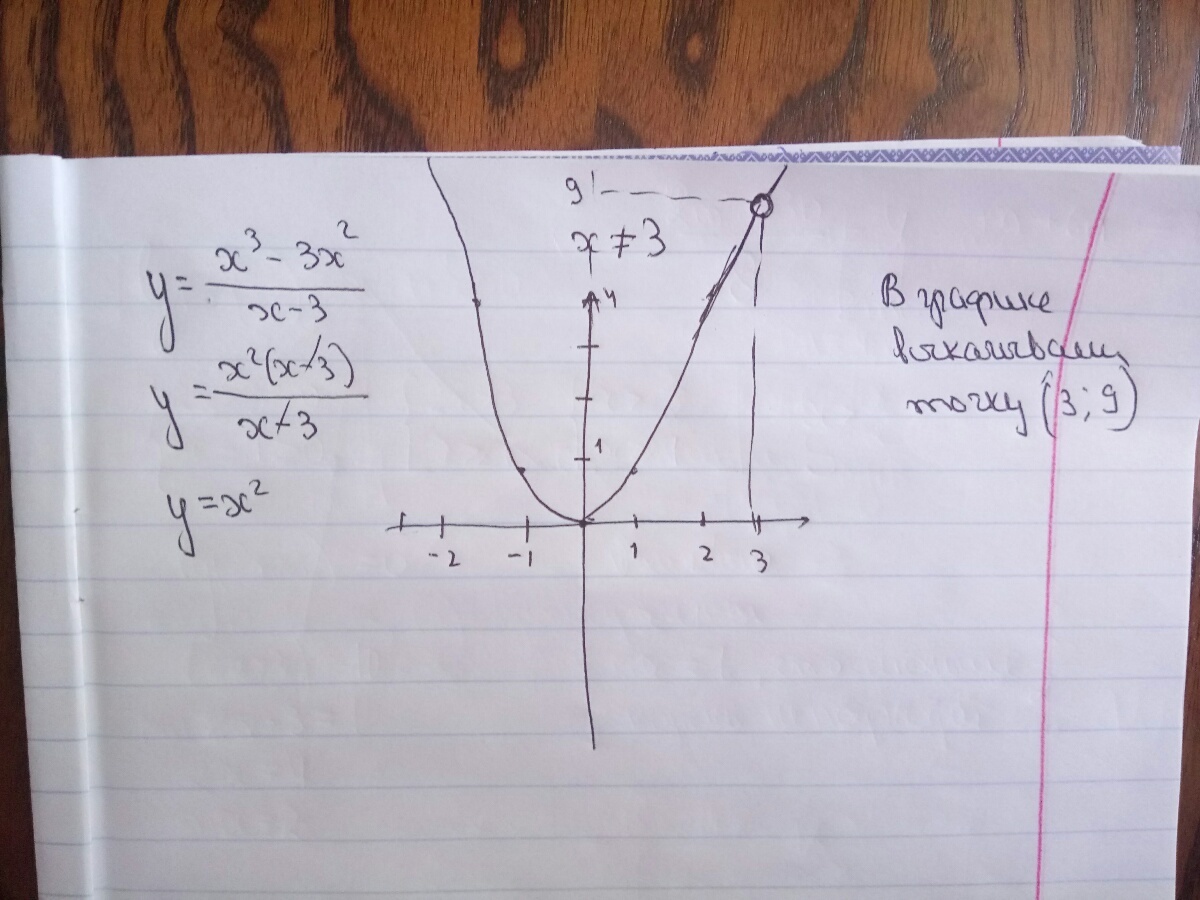 y = x³ - 3x² / x - 3
y = x²(x - 3) / x - 3
y = x²
9
x ≠ 3
4
1
-2 -1 1 2 3
В графике
выкалываем
точку (3; 9)